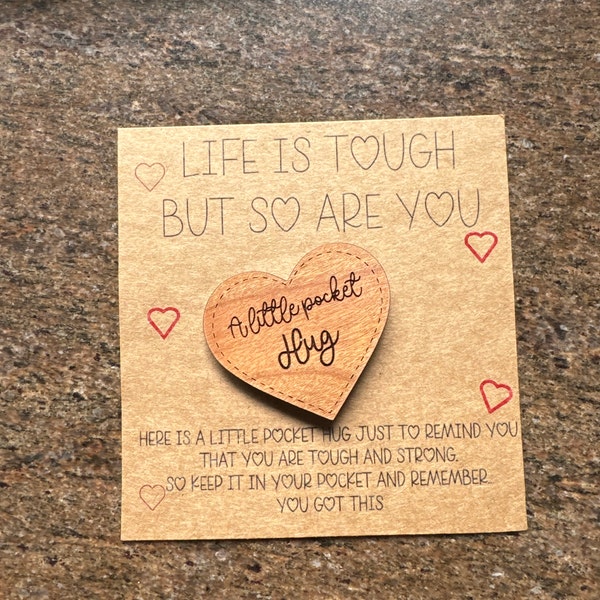 LIFE IS TOUGH
BUT SO ARE YOU
A little pocket
Hug
HERE IS A LITTLE POCKET HUG JUST TO REMIND YOU
THAT YOU ARE TOUGH AND STRONG.
SO KEEP IT IN YOUR POCKET AND REMEMBER
YOU GOT THIS